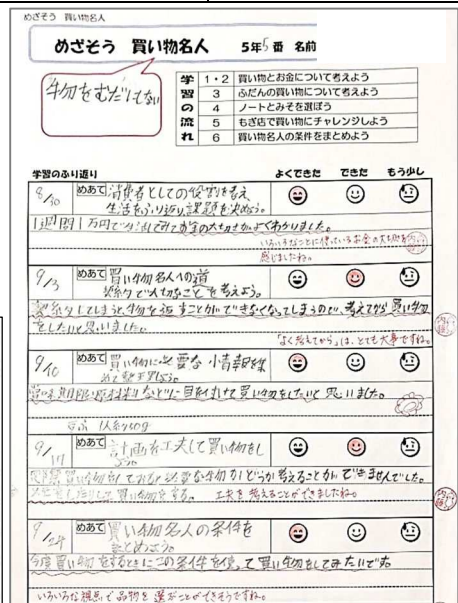 めざそう 買い物名人
めざそう 買い物名人 5年5番 名前
物をむだにしない
学習の流れ
1・2 買い物とお金について考えよう
3 ふだんの買い物について考えよう
4 ノートとみそを選ぼう
5 もぎ店で買い物にチャレンジしよう
6 買い物名人の条件をまとめよう
学習のふり返り よくできた できた もう少し
8/30 めあて 消費者としての役割を考え
生活をふり返り、課題を決めよう。
1週間1万円で生活してみてお金の大切さがよくわかりました。
いろいろなことに使っているお金の大切さを
感じましたね。
9/3 めあて 買い物名人への道
契約で大切なことを考えよう。
契約してしまうと物を返すことができなくなってしまうので、考えてから買い物
をしたいと思いました。
「よく考えてから」は、とても大事ですね。
9/10 めあて 買い物に必要な情報を集
めて整理しよう。
賞味期限や原材料などに目を向けて買い物をしたいと思いました。
9/17 めあて 計画を工夫して買い物をし
よう。
買い物をしてみると必要な物かどうか考えることができませんでした。
買い物をする。 工夫を考えることができましたね。
9/24 めあて 買い物名人の条件を
まとめよう。
今度買い物をするときにこの条件を使って買い物をしてみたいです。
いろいろな視点で品物を選ぶことができそうですね。